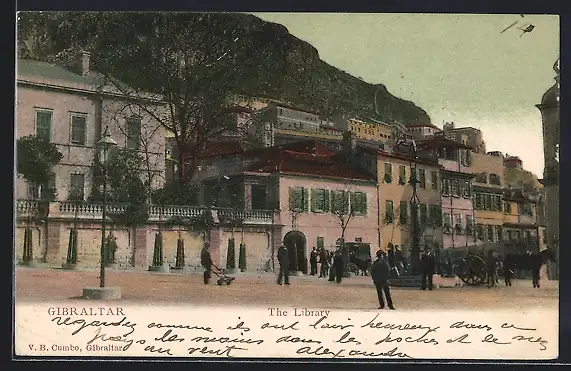 The Library
GIBRALTAR
The Library
regardez comme ils ont l'air heureux dans ce
pays les mains dans les poches et le nez
au vent alexandre
V. B. Cumbo, Gibraltar